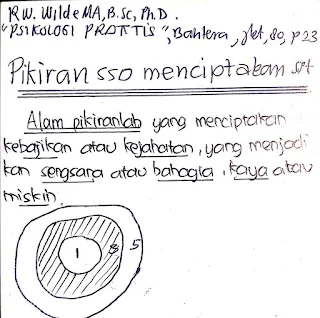 R.W. Wilde MA, B.Sc, Ph.D.
"PSIKOLOGI PRAKTIS", Bahtera, Jkt, 80, p 23
Pikiran sso menciptakan st
Alam pikiranlah yang menciptakan
kebajikan atau kejahatan, yang menjadi
kan sengsara atau bahagia, kaya atau
miskin.
1 3 5